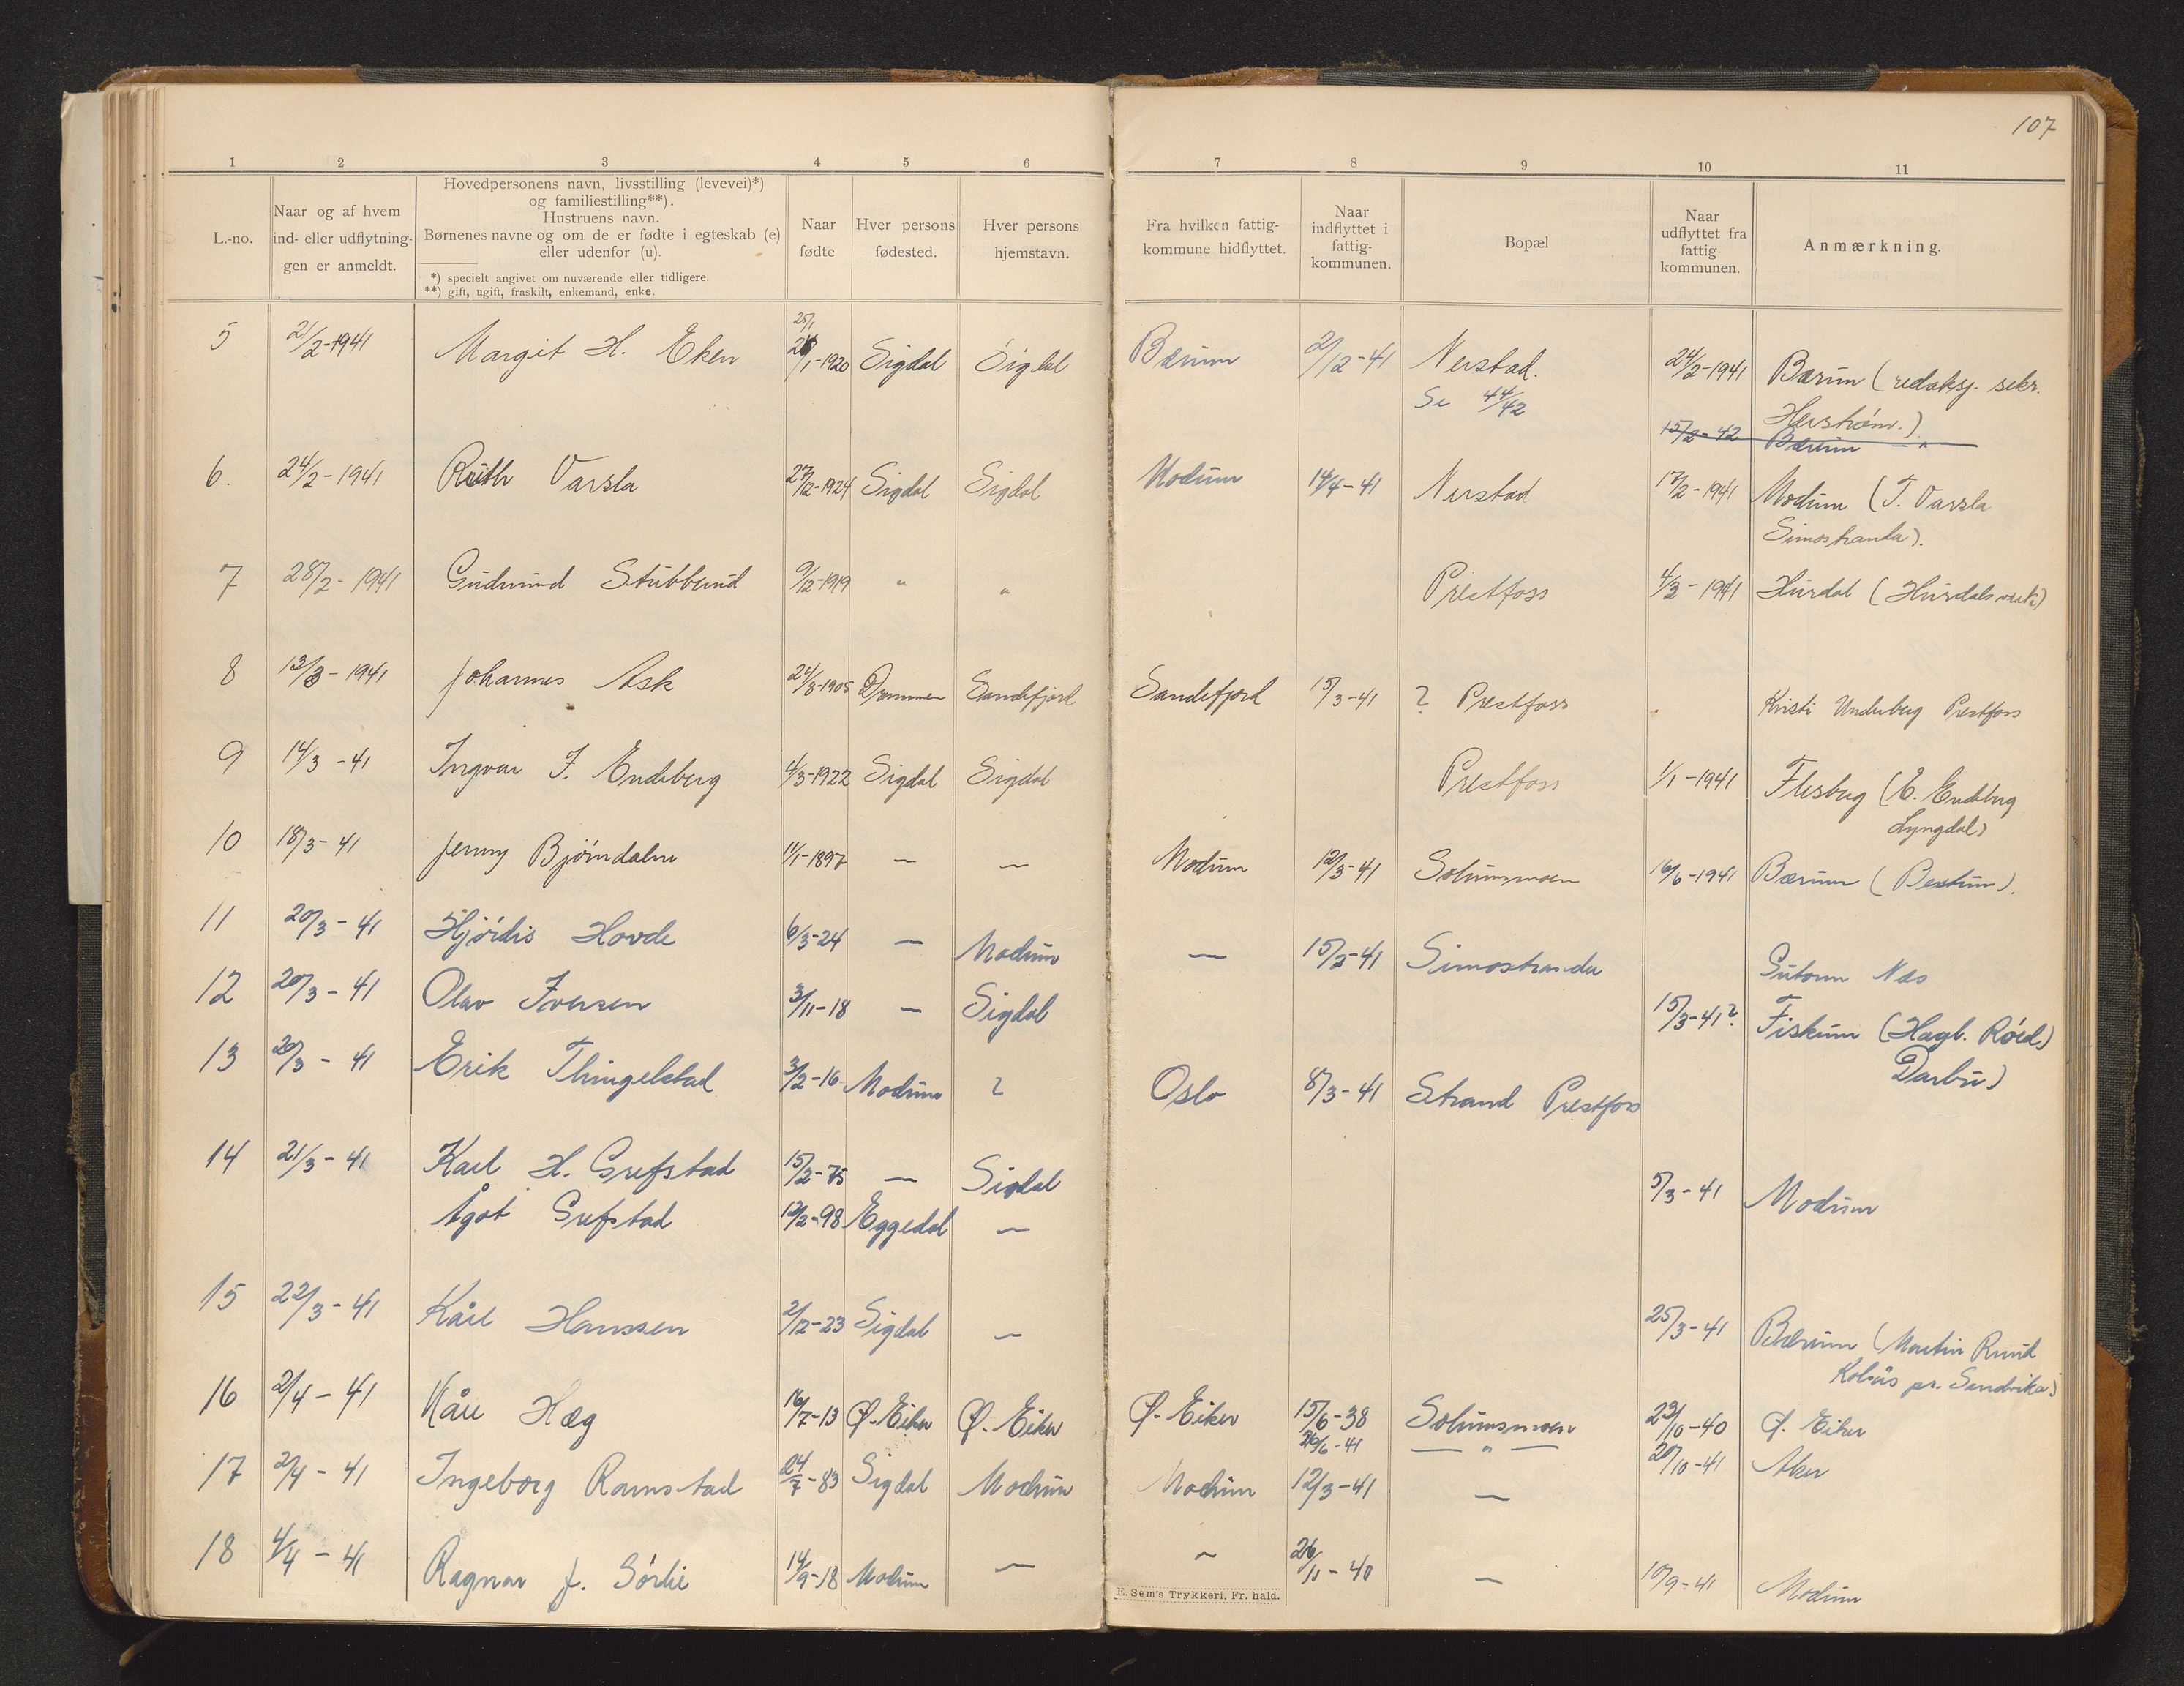 107
1 2 3 4 5 6 7 8 9 10 11
L.-no.
Naar og af hvem
ind- eller udflytning-
gen er anmeldt.
Hovedpersonens navn, livsstilling (levevei)*)
og familiestilling**).
Hustruens navn.
Børnenes navne og om de er fødte i egteskab (e)
eller udenfor (u).
*) specielt angivet om nuværende eller tidligere.
**) gift, ugift, fraskilt, enkemand, enke.
Naar
fødte
Hver persons
fødested.
Hver persons
hjemstavn.
Fra hvilken fattig-
kommune hidflyttet.
Naar
indflyttet i
fattig-
kommunen.
Bopæl
Naar
udflyttet fra
fattig-
kommunen.
Anmærkning.
25/1
5 21/2-1941 Margit H. Eken /1-1920 Sigdal Sigdal Bærum 2/12-41 Nerstad. 24/2-1941 Bærum (redaksj. sekr.
Se 44/42 Herstrøm.)
15/2-42 Bærum "
6. 24/2-1941 Ruth Varsla 27/12-1924 Sigdal Sigdal Modum 14/4-41 Nerstad 17/2-1941 Modum (T. Varsla
Simostranda).
7 28/2-1941 Gudmund Stubberud 9/12-1919 " " Prestfoss 4/3-1941 Hurdal (Hurdals verk)
8 13/3-1941 Johannes Ask 24/3-1905 Drammen Sandefjord Sandefjord 15/3-41 ? Prestfoss Kristi Underberg Prestfoss
9 14/3-41 Ingvar F. Endeberg 4/3-1922 Sigdal Sigdal Prestfoss 1/1-1941 Flesberg (E. Endeberg
Lyngdal)
10 18/3-41 Jenny Bjørndalen 11/1-1897 — — Modum 12/3-41 Solumsmoen 16/6-1941 Bærum (Bestum).
11 20/3-41 Hjørdis Hovde 6/3-24 — Modum — 15/2-41 Simostranda Gutorm Næs
12 20/3-41 Olav Iversen 3/11-18 — Sigdal 15/3-41? Fiskum (Hagb. Røed)
Darbu)
13 20/3-41 Erik Thingelstad 3/2-16 Modum ? Oslo 8/3-41 Strand Prestfoss
14 21/3-41 Karl H. Grefstad 15/2-75 — Sigdal 5/3-41 Modum
Ågot Grefstad 12/2-98 Eggedal —
15 22/3-41 Kåre Hanssen 2/12-23 Sigdal — 25/3-41 Bærum (Martin Ruud
Kolsås pr. Sandvika)
16 2/4-41 Kåre Hæg 16/7-13 Ø. Eiker Ø. Eiker Ø. Eiker 15/6-38 Solumsmoen 23/10-40 Ø. Eiker
26/6-41 — " — 20/10-41 Aker
17 2/4-41 Ingeborg Ramstad 24/7-83 Sigdal Modum Modum 12/3-41 —
18 4/4-41 Ragnar J. Sørlie 14/9-18 Modum — — 26/11-40 — 10/9-41 Modum
E. Sem's Trykkeri, Fr. hald.